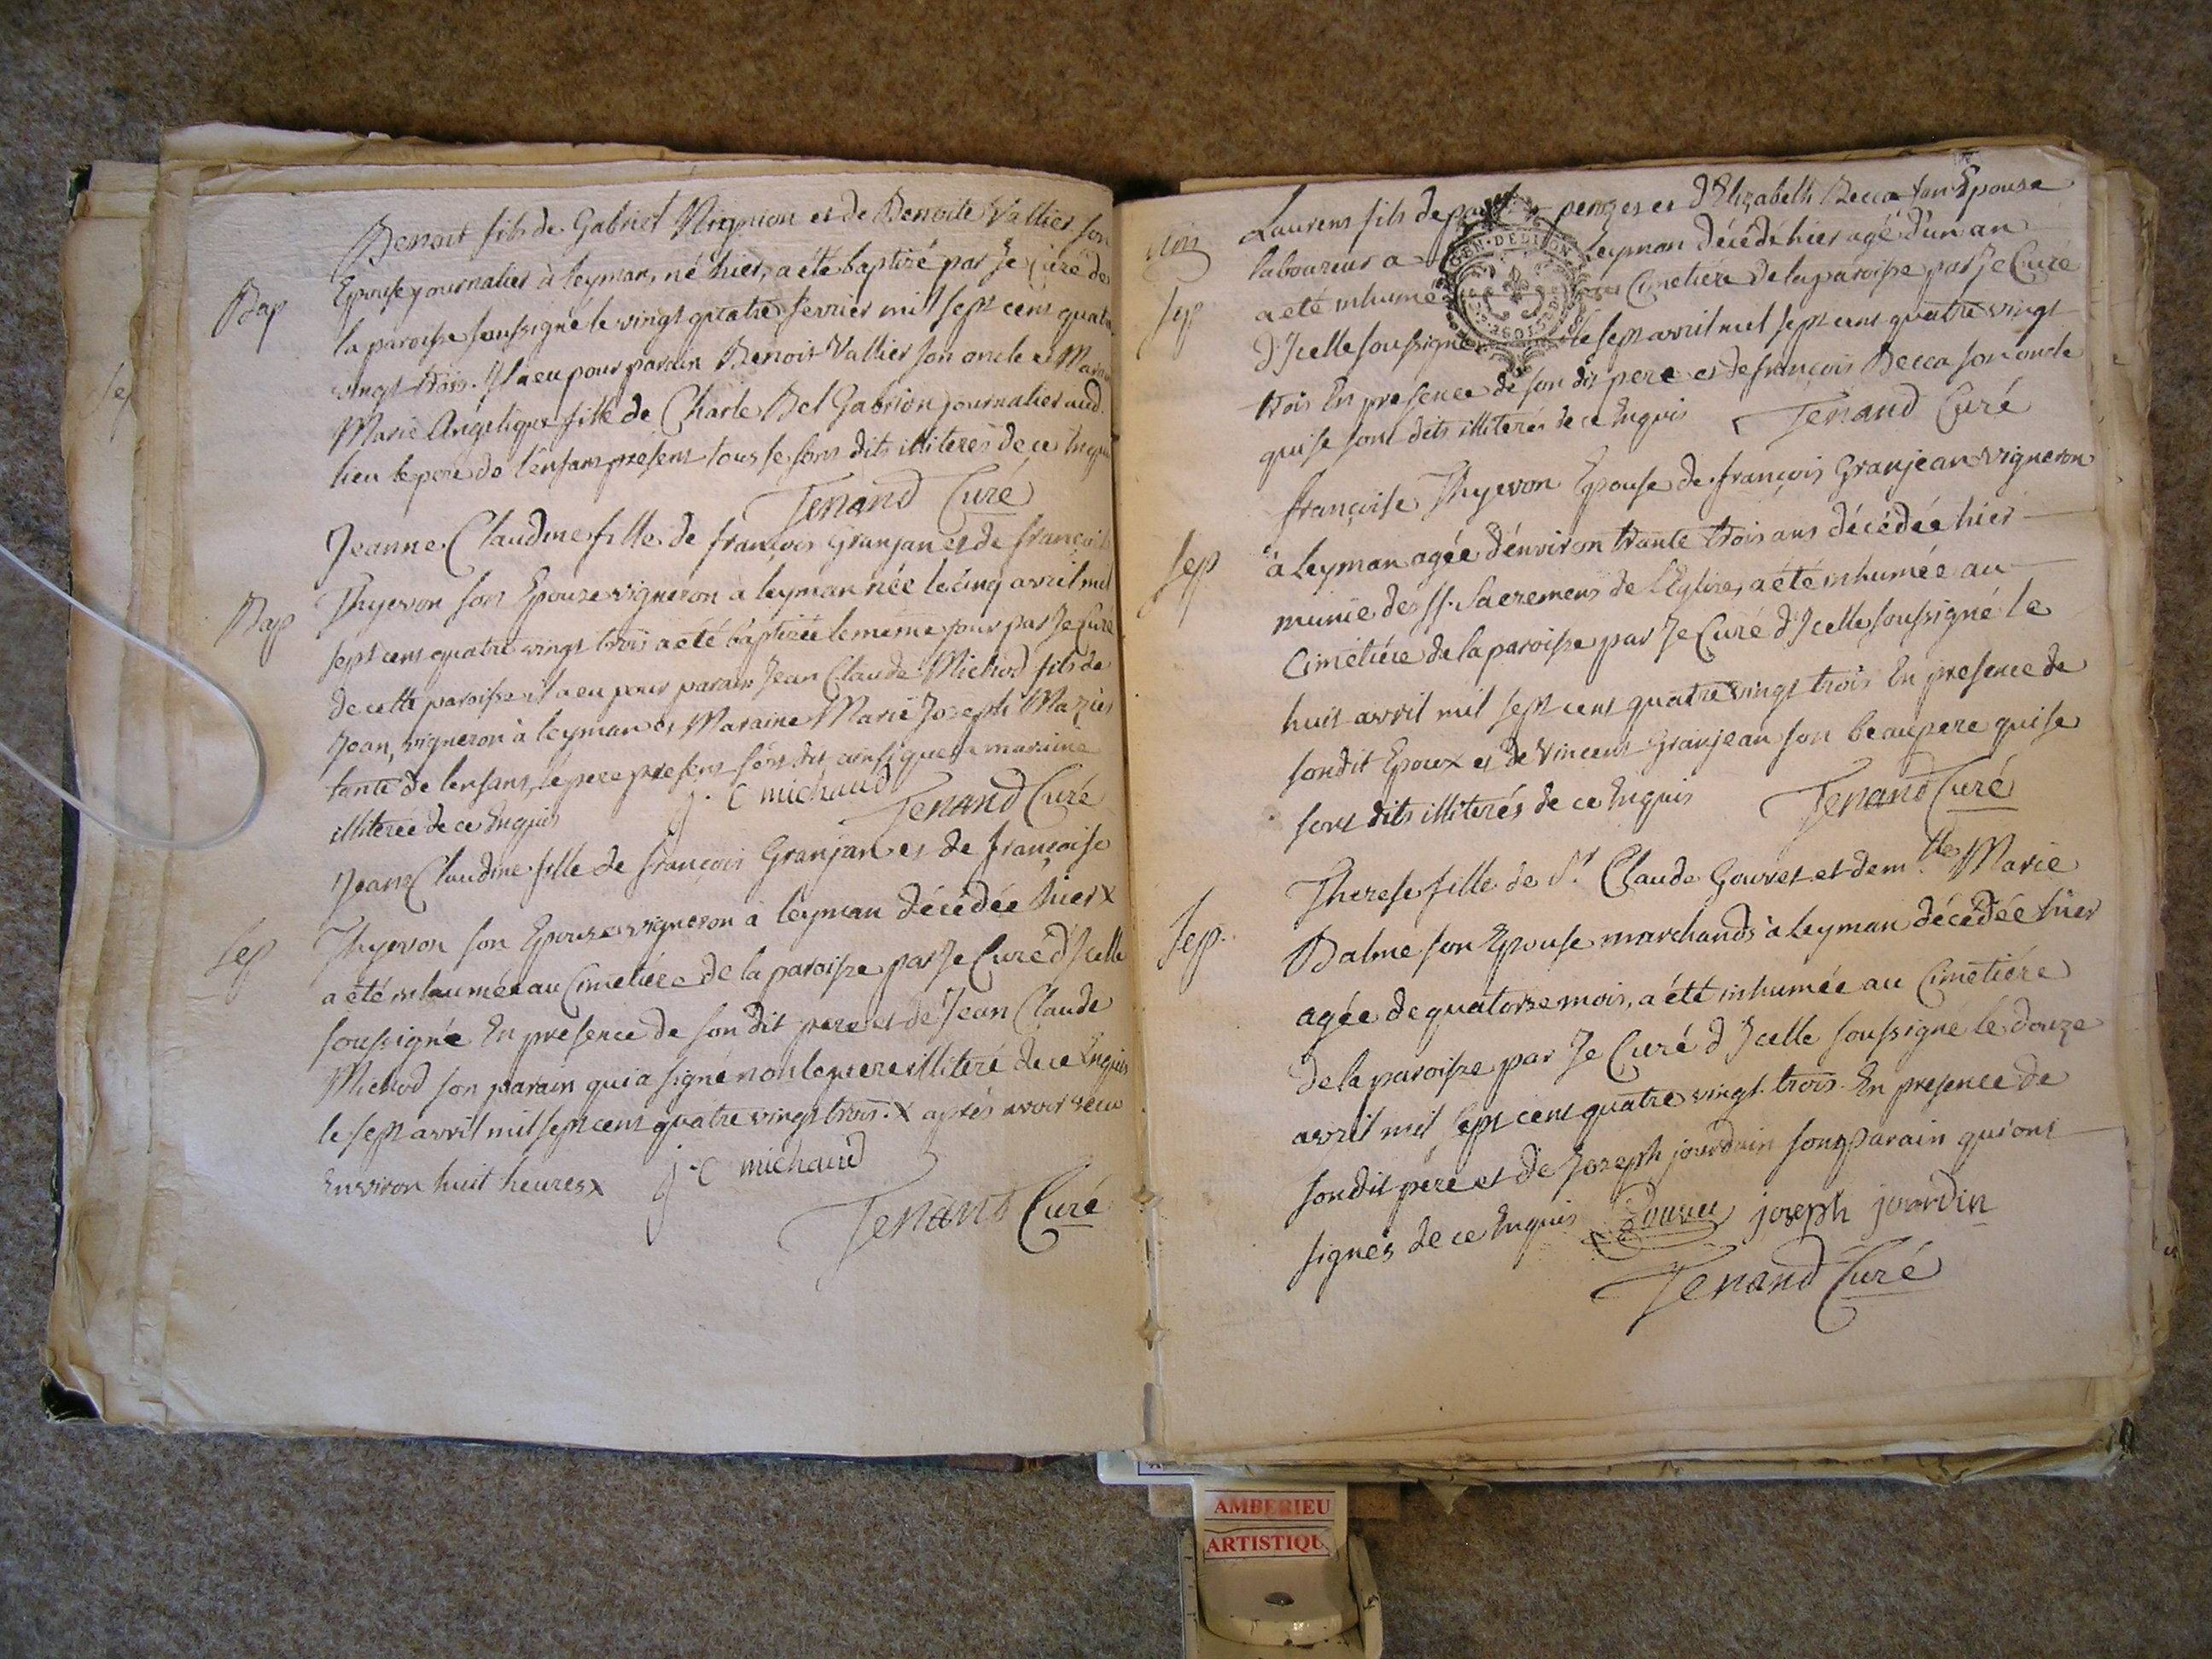 Benoit fils de Gabriel Vignion et de Benoite Vallier son
Bap
Epouse journalier à leyman, né hier, a été baptizé par Je Curé de
la paroisse soussigné le vingt quatre fevrier mil sept cent quatre
vingt trois. Il a eu pour parain Benoit Vallier son oncle et Maraine
Marie Angélique fille de Charle Bel Gabrion journalier aud.
lieu le pere de l'enfant present tous se sont dits illiterés de ce Enquis
Tenand Curé
Jeanne Claudine fille de françois Granjan et de françoise
Bap
Thyevon son Epouze vigneron a leyman née le cinq avril mil
sept cent quatre vingt trois a été baptizée le meme jour par Je Curé
de cette paroisse il a eu pour parain Jean Claude Michod fils de
Jean, vigneron à leyman et Maraine Marie Joseph Mazier
tante de l'enfant, le pere present s'est dit ainsi que la maraine
illiterée de ce Enquis j. c michaud
Tenand Curé
Jean Claudine fille de françois Granjan et de françoise
Sep
Thyevon son Epouze vigneron à leyman décédée hier x
a été inhumée au Cimetiére de la paroisse par Je Curé d'Icelle
soussigné En presence de son dit pere et de Jean Claude
Michod son parain qui a signé non le pere illiteré de ce Enquis
le sept avril mil sept cent quatre vingt trois. x aprés avoir vecu
Environ huit heures x j. c michaud
Tenand Curé
Laurens fils de et d'Elizabeth Becca son Epouse
laboureur a leyman décédé hier agé d'un an
Sep
a eté inhumé Cimetiére de la paroisse par Je Curé
GEN. DE DIJON
d'Icelle soussigné le sept avril mil sept cent quatre vingt
trois En presence de son dit pere et de françois Becca son oncle
qui se sont dits illiterés de ce Enquis Tenand Curé
françoise Thyevon Epouse de françois Granjean vigneron
Sep
à Leyman agée d'environ trante trois ans décédée hier
munie des SS. Sacremens de l'Eglise, a été inhumée au
Cimetiére de la paroisse par Je Curé d'Icelle soussigné le
huit avril mil sept cent quatre vingt trois En presence de
son dit Epoux et de Vincent Granjean son beaupere qui se
sont dits illiterés de ce Enquis Tenand Curé
Therese fille de Sr. Claude Gouvet et dem.lle Marie
Sep.
Balme son Epouse marchands à Leyman décédée hier
agée de quatorze mois, a été inhumée au Cimetiére
de la paroisse par Je Curé d'Icelle soussigné le douze
avril mil sept cent quatre vingt trois En presence de
son dit pere et de Joseph jourdain son parain qui ont
signés de ce Enquis joseph jourdin
Tenand Curé
AMBERIEU
ARTISTIQU